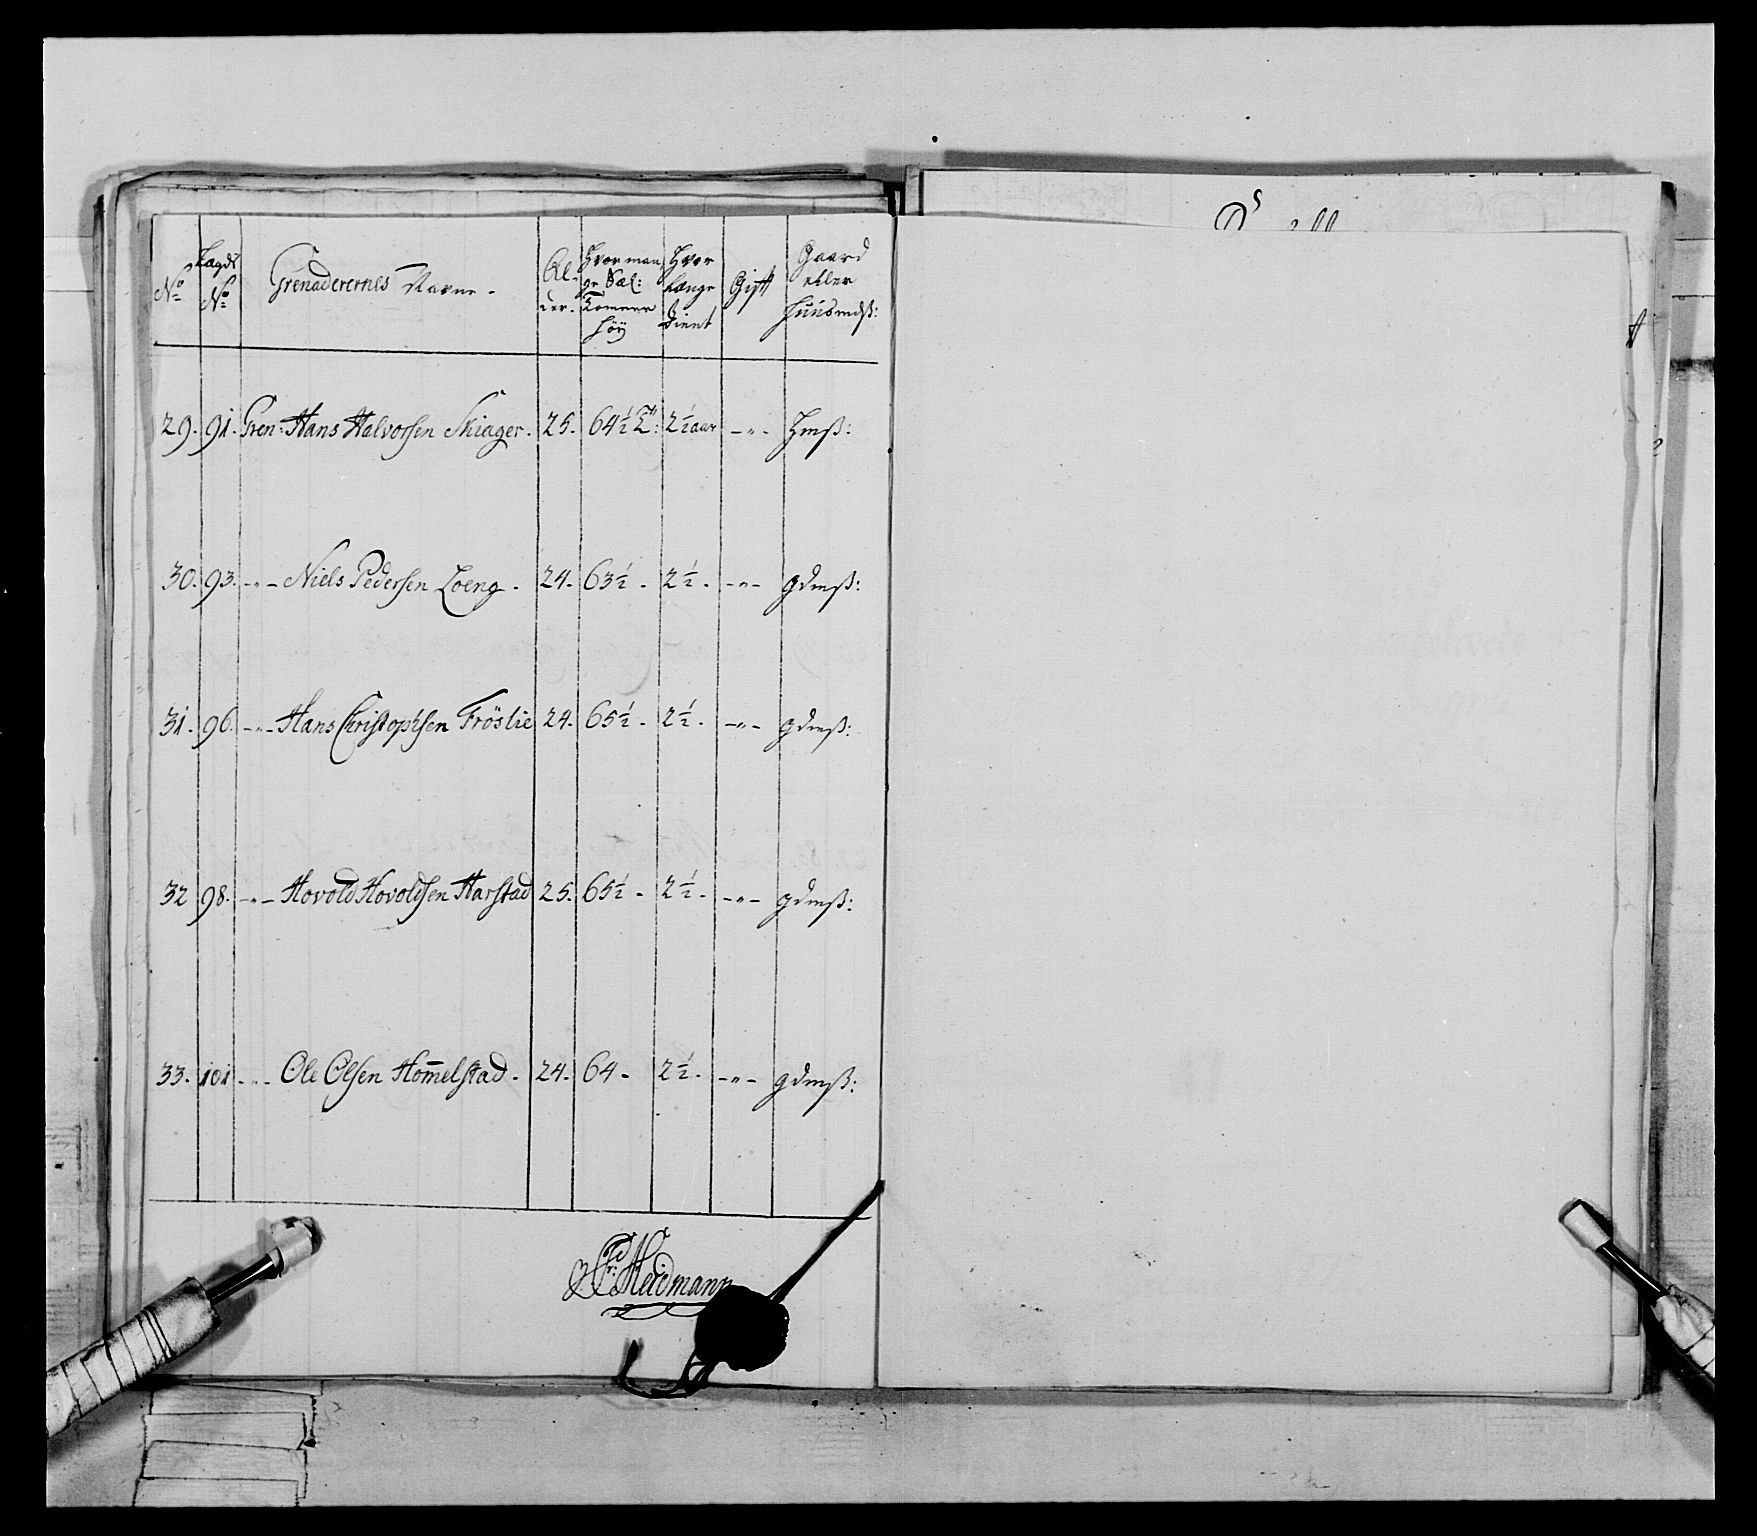 No
Lægds No
Grenaderernes Navne -
Al- der.
Hvor man ge Sæl: Tommer höy
Hvor længe dient
Gift
Gaard eller Huusmdß:
29. 91. Gren: Hans Halvorsen Skiager. 25. 64½ T: 2½ aar -"- Hmß:
30. 93. -"- Niels Pedersen Loeng - 24. 63½ - 2½. -"- gdmß:
31. 96. -"- Hans Christophsen Fröslie 24. 65½ - 2½. -"- gdmß:
32 98. -"- Hovold Hovoldsen Harstad 25. 65½ - 2½. -"- gdmß:
33. 101 -"- Ole Olsen Hom̄elstad. 24. 64 - 2½. -"- gdmß:
Heidmann